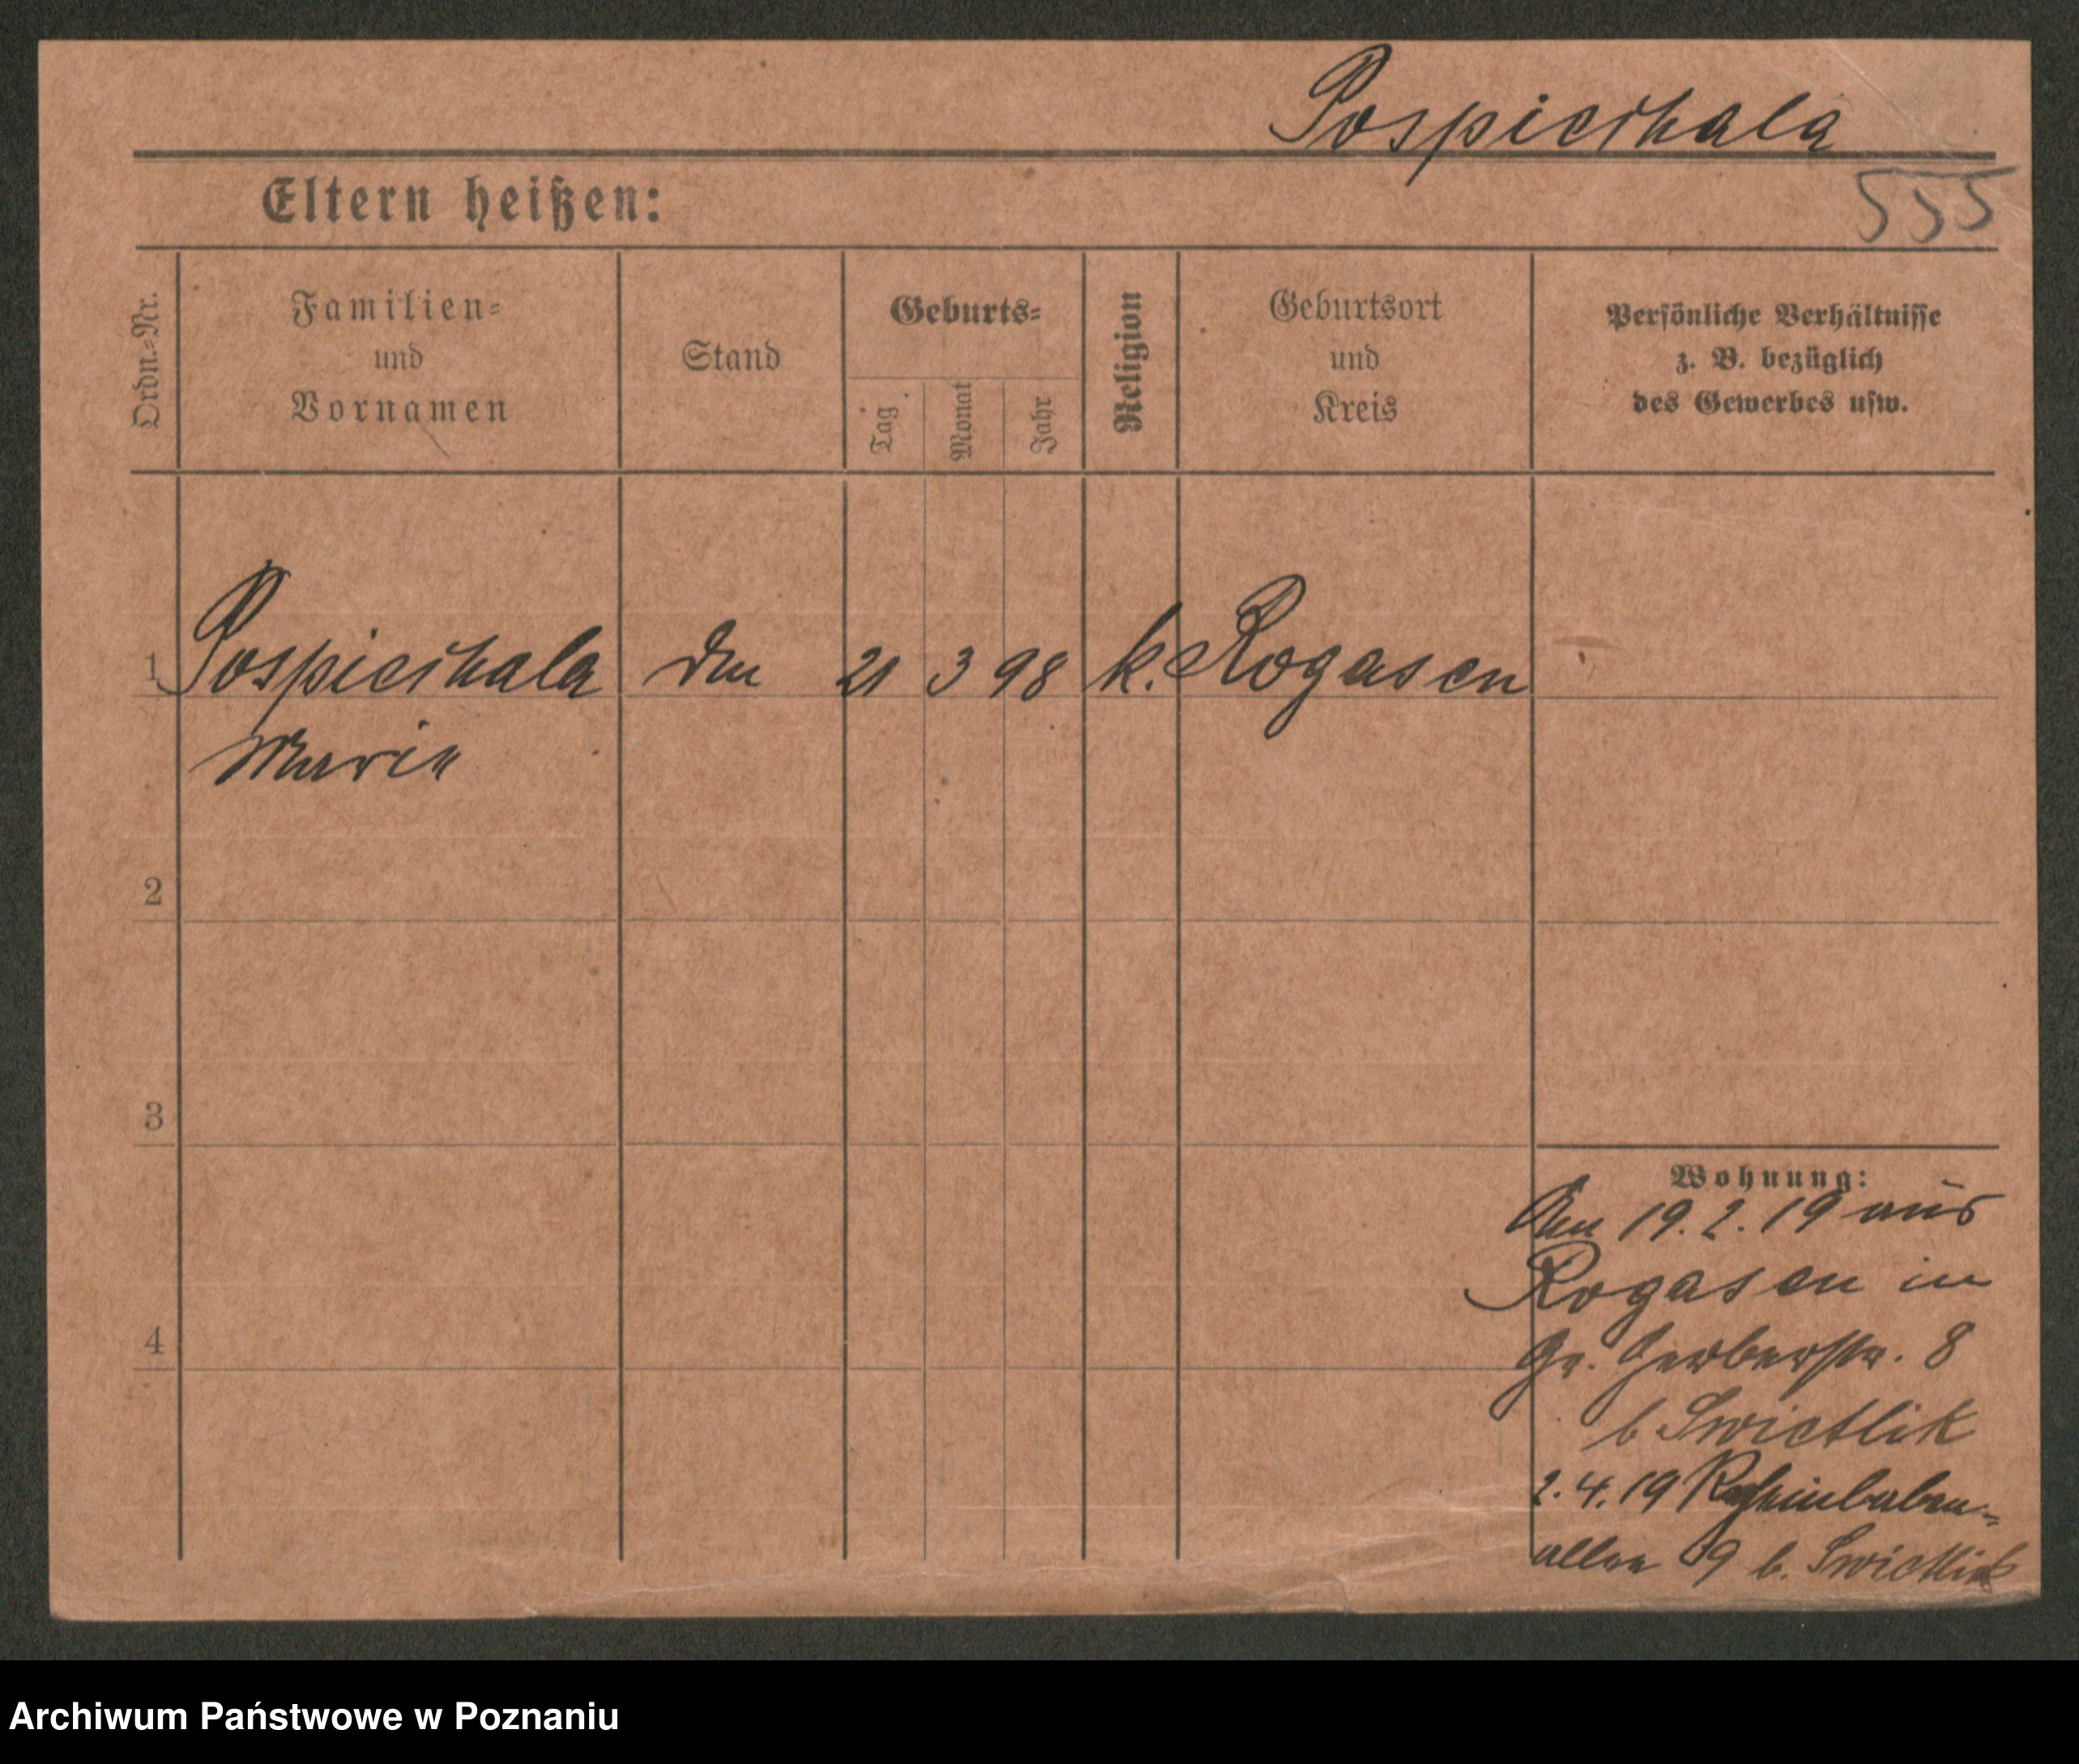 Pospieschala
555
Eltern heißen:
Ordn.-Nr.
Familien-
und
Vornamen
Stand
Geburts-
Tag
Monat
Jahr
Religion
Geburtsort
und
Kreis
Persönliche Verhältnisse
z. B. bezüglich
des Gewerbes usw.
1 Pospieschala 21 3 98 k. Rogasen
Marie
2
3
4
Wohnung:
Am 19.2.19 aus
Rogasen in
Gr. Gerberstr. 8
b Swietlik
2.4.19
allee b. Swietlik
Archiwum Państwowe w Poznaniu